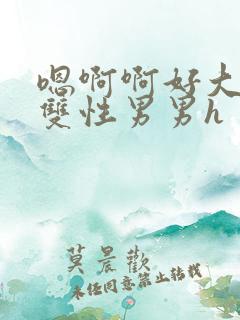 嗯啊啊好大
雙性男男h
莫晨歡
未经同意禁止转载